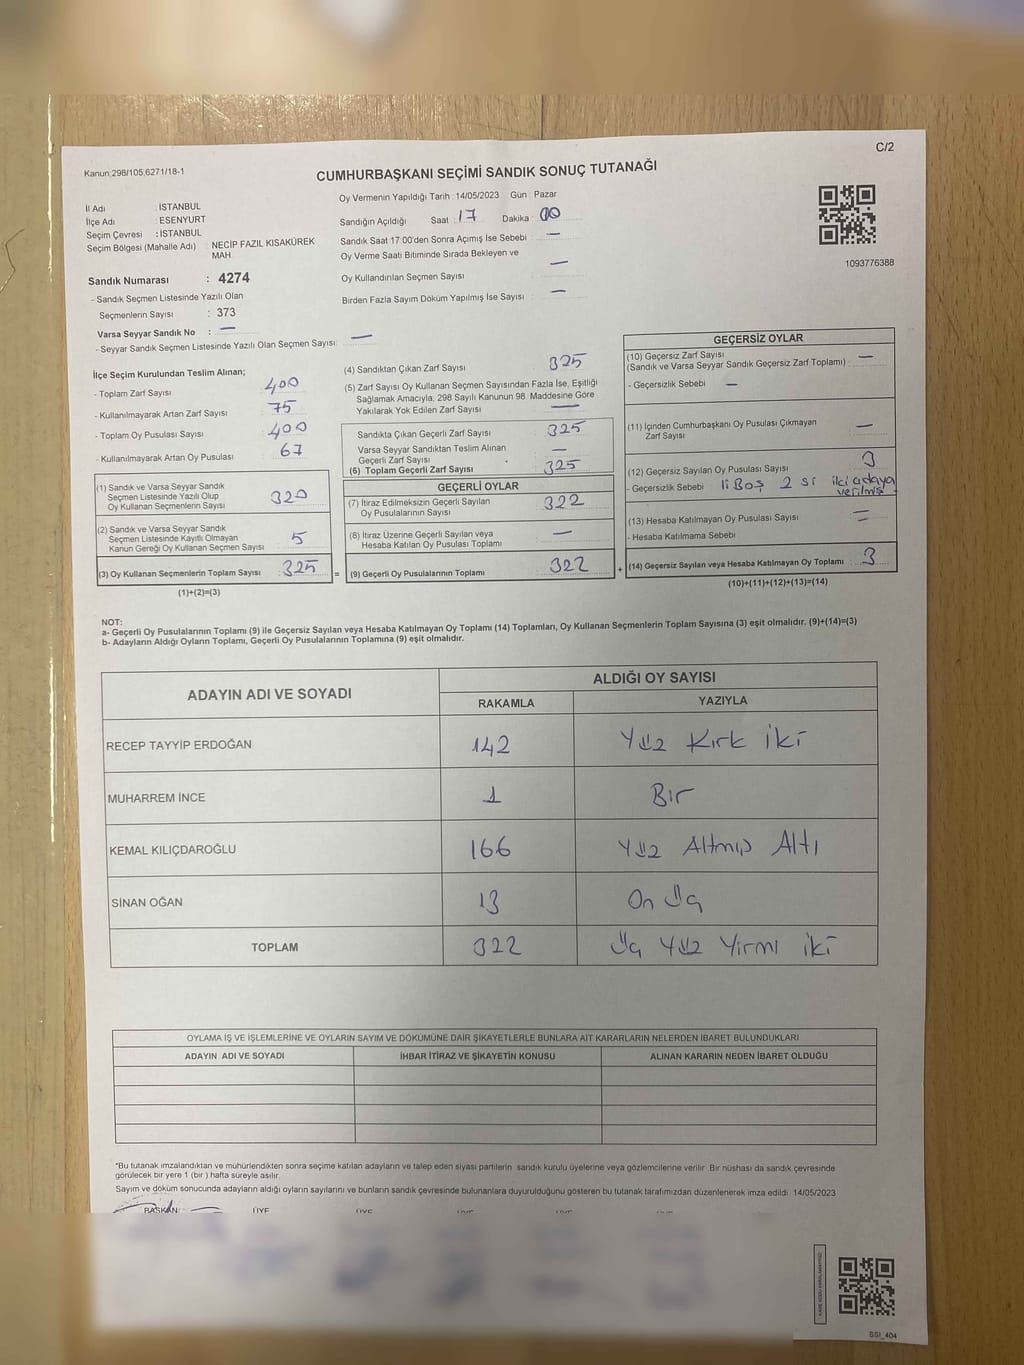 C/2
Kanun:298/105,6271/18-1
CUMHURBAŞKANI SEÇİMİ SANDIK SONUÇ TUTANAĞI
İl Adı : İSTANBUL
İlçe Adı : ESENYURT
Seçim Çevresi : İSTANBUL
Seçim Bölgesi (Mahalle Adı) : NECİP FAZIL KISAKÜREK
MAH.
Sandık Numarası : 4274
- Sandık Seçmen Listesinde Yazılı Olan
Seçmenlerin Sayısı : 373
Varsa Seyyar Sandık No : —
- Seyyar Sandık Seçmen Listesinde Yazılı Olan Seçmen Sayısı: —
Oy Vermenin Yapıldığı Tarih :14/05/2023 Gün : Pazar
Sandığın Açıldığı Saat : 17 Dakika : 00
Sandık Saat 17:00'den Sonra Açımış İse Sebebi —
Oy Verme Saati Bitiminde Sırada Bekleyen ve
Oy Kullandırılan Seçmen Sayısı —
Birden Fazla Sayım Döküm Yapılmış İse Sayısı —
1093776388
İlçe Seçim Kurulundan Teslim Alınan;
- Toplam Zarf Sayısı 400
- Kullanılmayarak Artan Zarf Sayısı 75
- Toplam Oy Pusulası Sayısı 400
- Kullanılmayarak Artan Oy Pusulası 67
(1) Sandık ve Varsa Seyyar Sandık
Seçmen Listesinde Yazılı Olup
Oy Kullanan Seçmenlerin Sayısı 320
(2) Sandık ve Varsa Seyyar Sandık
Seçmen Listesinde Kayıtlı Olmayan
Kanun Gereği Oy Kullanan Seçmen Sayısı 5
(3) Oy Kullanan Seçmenlerin Toplam Sayısı 325 =
(1)+(2)=(3)
(4) Sandıktan Çıkan Zarf Sayısı 325
(5) Zarf Sayısı Oy Kullanan Seçmen Sayısından Fazla İse, Eşitliği
Sağlamak Amacıyla; 298 Sayılı Kanunun 98. Maddesine Göre
Yakılarak Yok Edilen Zarf Sayısı —
Sandıkta Çıkan Geçerli Zarf Sayısı 325
Varsa Seyyar Sandıktan Teslim Alınan
Geçerli Zarf Sayısı —
(6) Toplam Geçerli Zarf Sayısı 325
GEÇERLİ OYLAR
(7) İtiraz Edilmeksizin Geçerli Sayılan
Oy Pusulalarının Sayısı 322
(8) İtiraz Üzerine Geçerli Sayılan veya
Hesaba Katılan Oy Pusulası Toplamı —
(9) Geçerli Oy Pusulalarının Toplamı 322 +
GEÇERSİZ OYLAR
(10) Geçersiz Zarf Sayısı
(Sandık ve Varsa Seyyar Sandık Geçersiz Zarf Toplamı) : —
- Geçersizlik Sebebi —
(11) İçinden Cumhurbaşkanı Oy Pusulası Çıkmayan
Zarf Sayısı —
(12) Geçersiz Sayılan Oy Pusulası Sayısı 3
- Geçersizlik Sebebi 1i Boş 2 si iki adaya
verilmiş
(13) Hesaba Katılmayan Oy Pusulası Sayısı —
- Hesaba Katılmama Sebebi —
(14) Geçersiz Sayılan veya Hesaba Katılmayan Oy Toplamı 3
(10)+(11)+(12)+(13)=(14)
NOT:
a- Geçerli Oy Pusulalarının Toplamı (9) ile Geçersiz Sayılan veya Hesaba Katılmayan Oy Toplamı (14) Toplamları, Oy Kullanan Seçmenlerin Toplam Sayısına (3) eşit olmalıdır. (9)+(14)=(3)
b- Adayların Aldığı Oyların Toplamı, Geçerli Oy Pusulalarının Toplamına (9) eşit olmalıdır.
ADAYIN ADI VE SOYADI ALDIĞI OY SAYISI
RAKAMLA YAZIYLA
RECEP TAYYİP ERDOĞAN 142 Yüz Kırk iki
MUHARREM İNCE 1 Bir
KEMAL KILIÇDAROĞLU 166 Yüz Altmış Altı
SİNAN OĞAN 13 On Üç
TOPLAM 322 Üç Yüz Yirmi iki
OYLAMA İŞ VE İŞLEMLERİNE VE OYLARIN SAYIM VE DÖKÜMÜNE DAİR ŞİKAYETLERLE BUNLARA AİT KARARLARIN NELERDEN İBARET BULUNDUKLARI
ADAYIN ADI VE SOYADI İHBAR İTİRAZ VE ŞİKAYETİN KONUSU ALINAN KARARIN NEDEN İBARET OLDUĞU
*Bu tutanak imzalandıktan ve mühürlendikten sonra seçime katılan adayların ve talep eden siyasi partilerin sandık kurulu üyelerine veya gözlemcilerine verilir. Bir nüshası da sandık çevresinde
görülecek bir yere 1 (bir) hafta süreyle asılır.
Sayım ve döküm sonucunda adayların aldığı oyların sayılarını ve bunların sandık çevresinde bulunanlara duyurulduğunu gösteren bu tutanak tarafımızdan düzenlenerek imza edildi. 14/05/2023
BAŞKAN ÜYE ÜYE
SSI_404